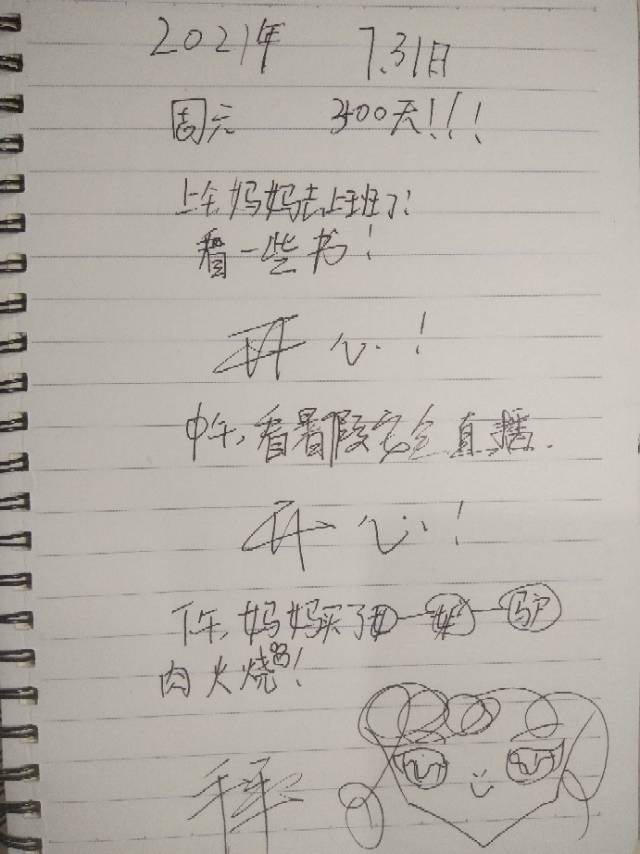 2021年 7.31日
周元 300天!!!
上午妈妈去上班了!
看一些书!
开心!
中午,看暑假安全直播.
开心!
下午,妈妈买了 驴
肉火烧!